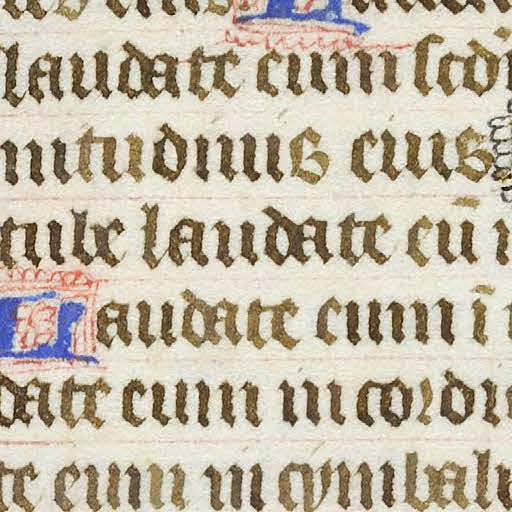 laudate eum scd
nitudinis eius
tube laudate eū i
Laudate eum ī
date eum in cordi
te eum in cymbali